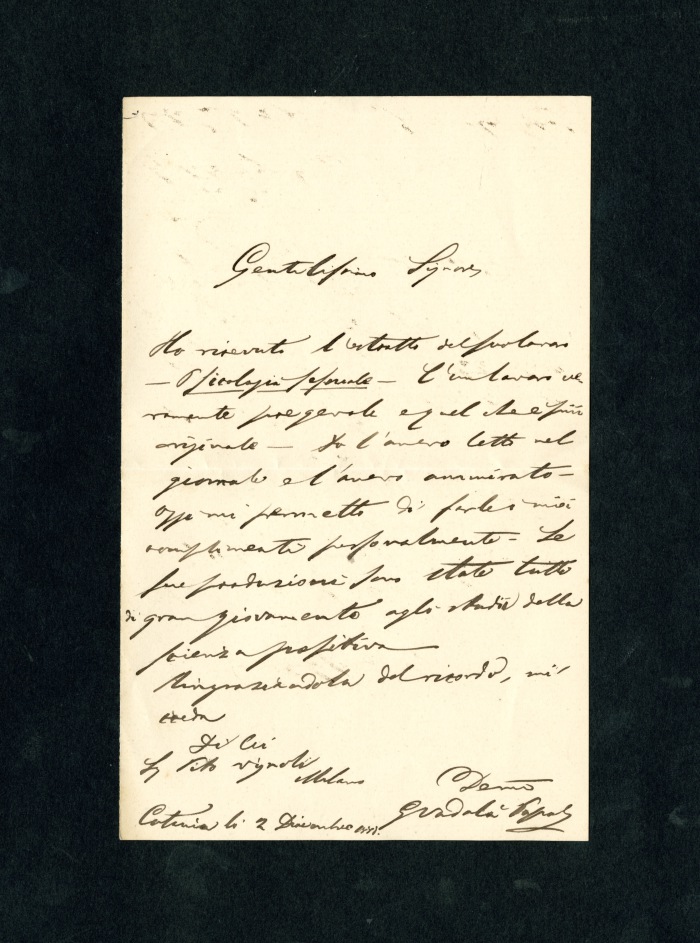 Gentilissimo Signore
Ho ricevuto l'estratto del suo lavoro
— Psicologia sessuale — È un lavoro ve-
ramente pregevole e quel che è più
originale — Io l'avevo letto nel
giornale e l'avevo ammirato —
Oggi mi permetto di farle i miei
complimenti personalmente — Le
sue produzioni sono state tutte
di gran giovamento agli studii della
scienza positiva
Ringraziandola del ricordo, mi
creda
Di Lei
Sg Tito Vignoli
Milano
Devmo
Guadalà Papale
Catania li 2 Dicembre